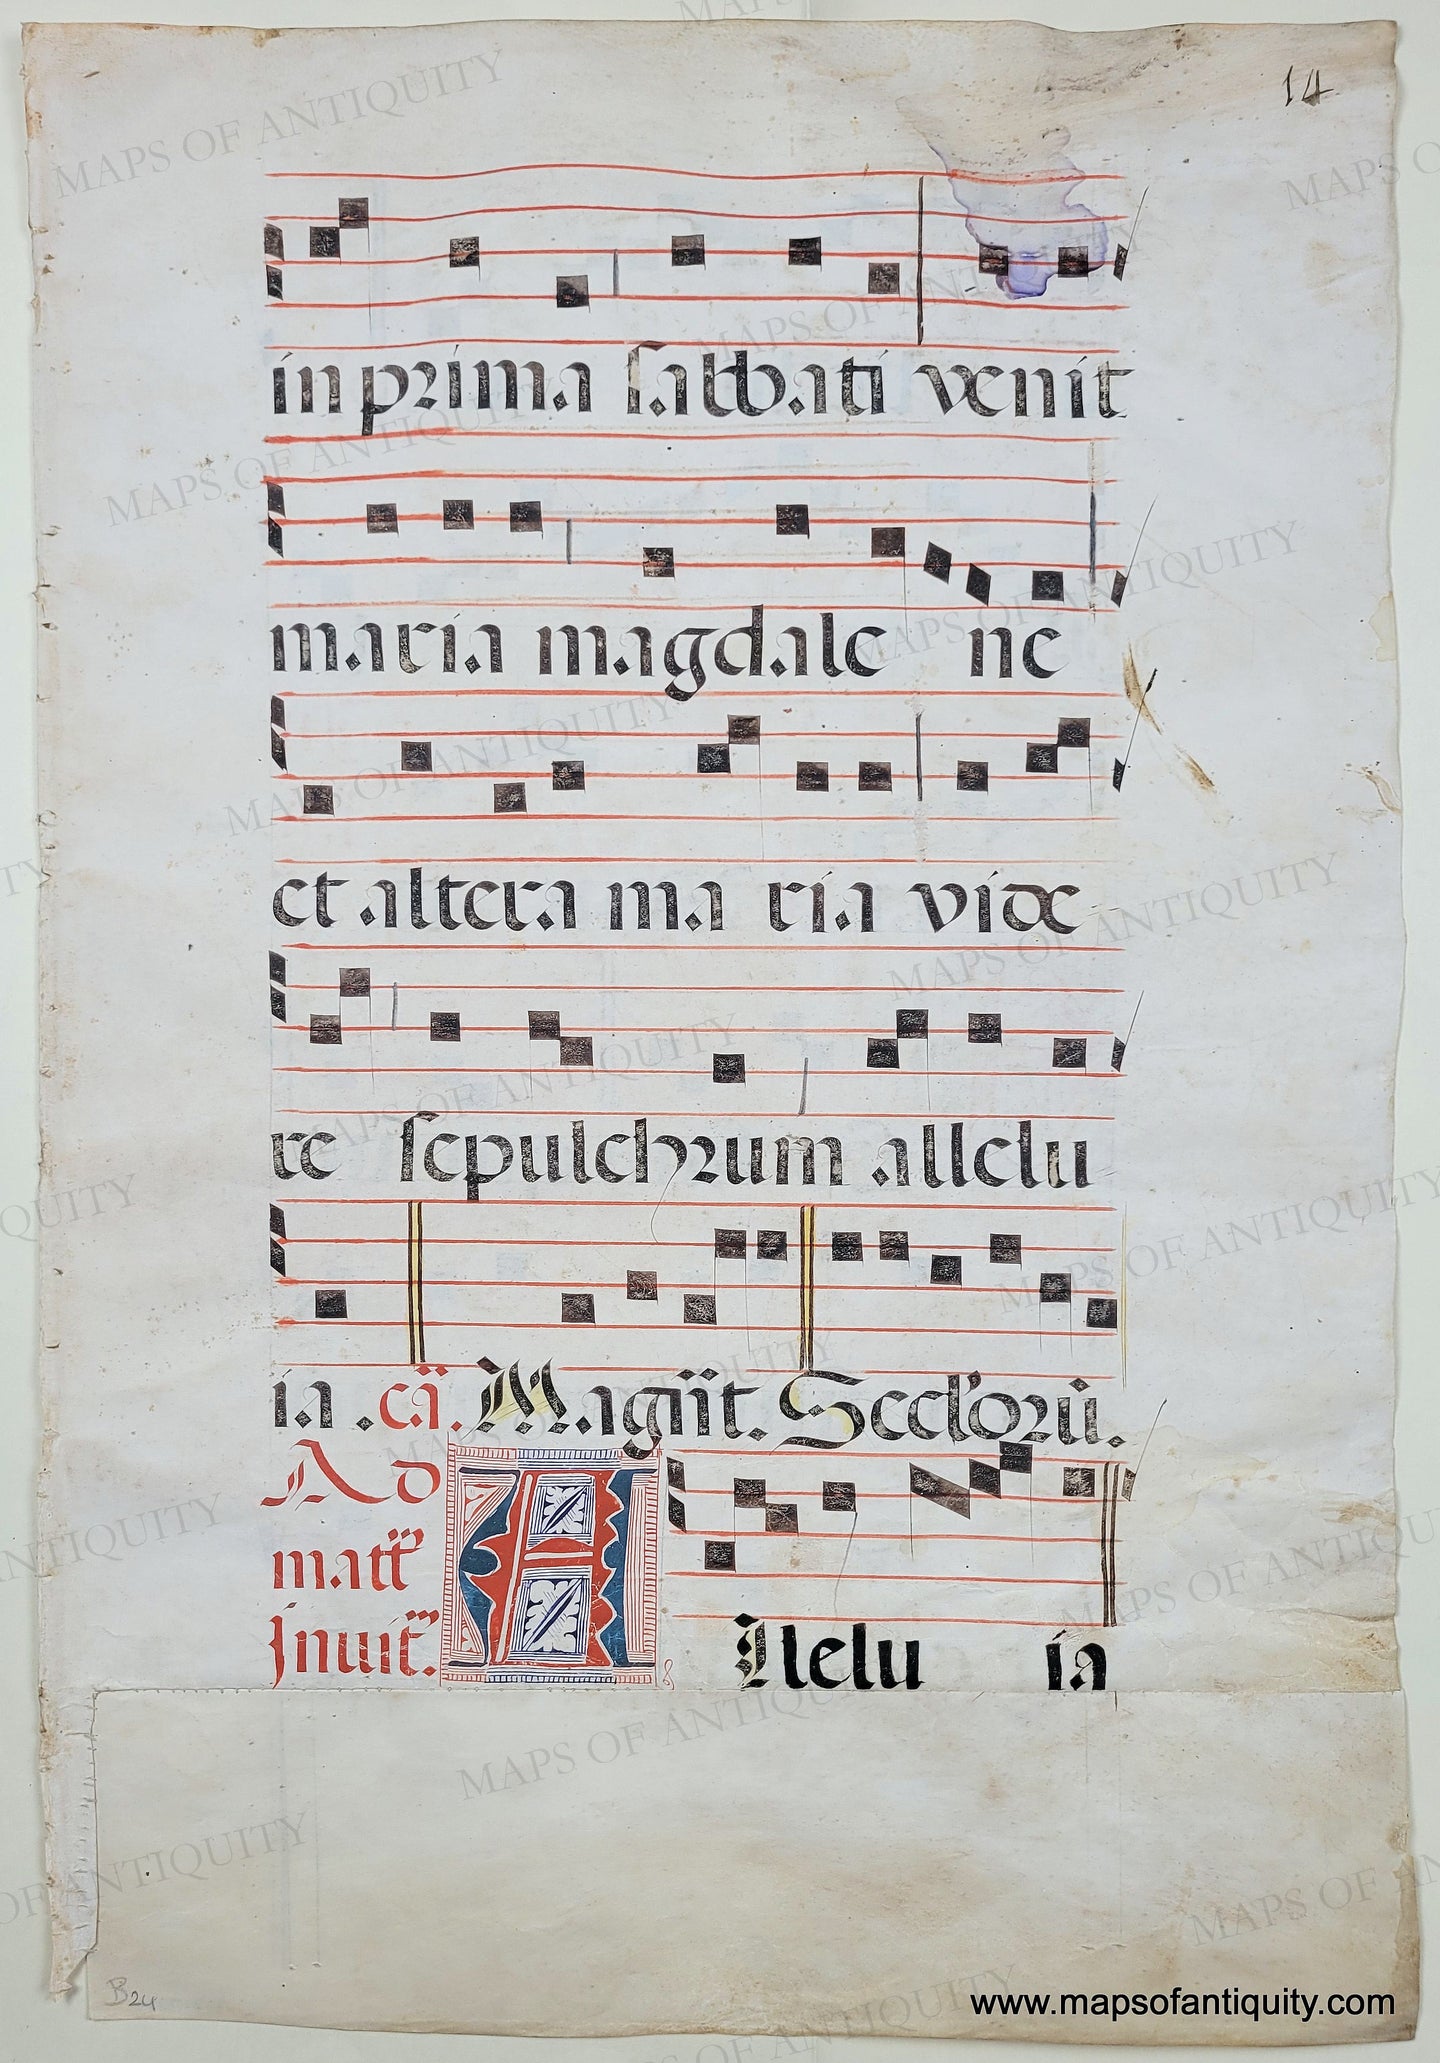 14
in prima sabbati venit
maria magdale ne
et altera ma ria vide
re sepulchrum allelu
ia . cã. Magñt. Seclorũ.
Ad
matt̃
Inuit̃.
A llelu ia
B24
www.mapsofantiquity.com
MAPS OF ANTIQUITY